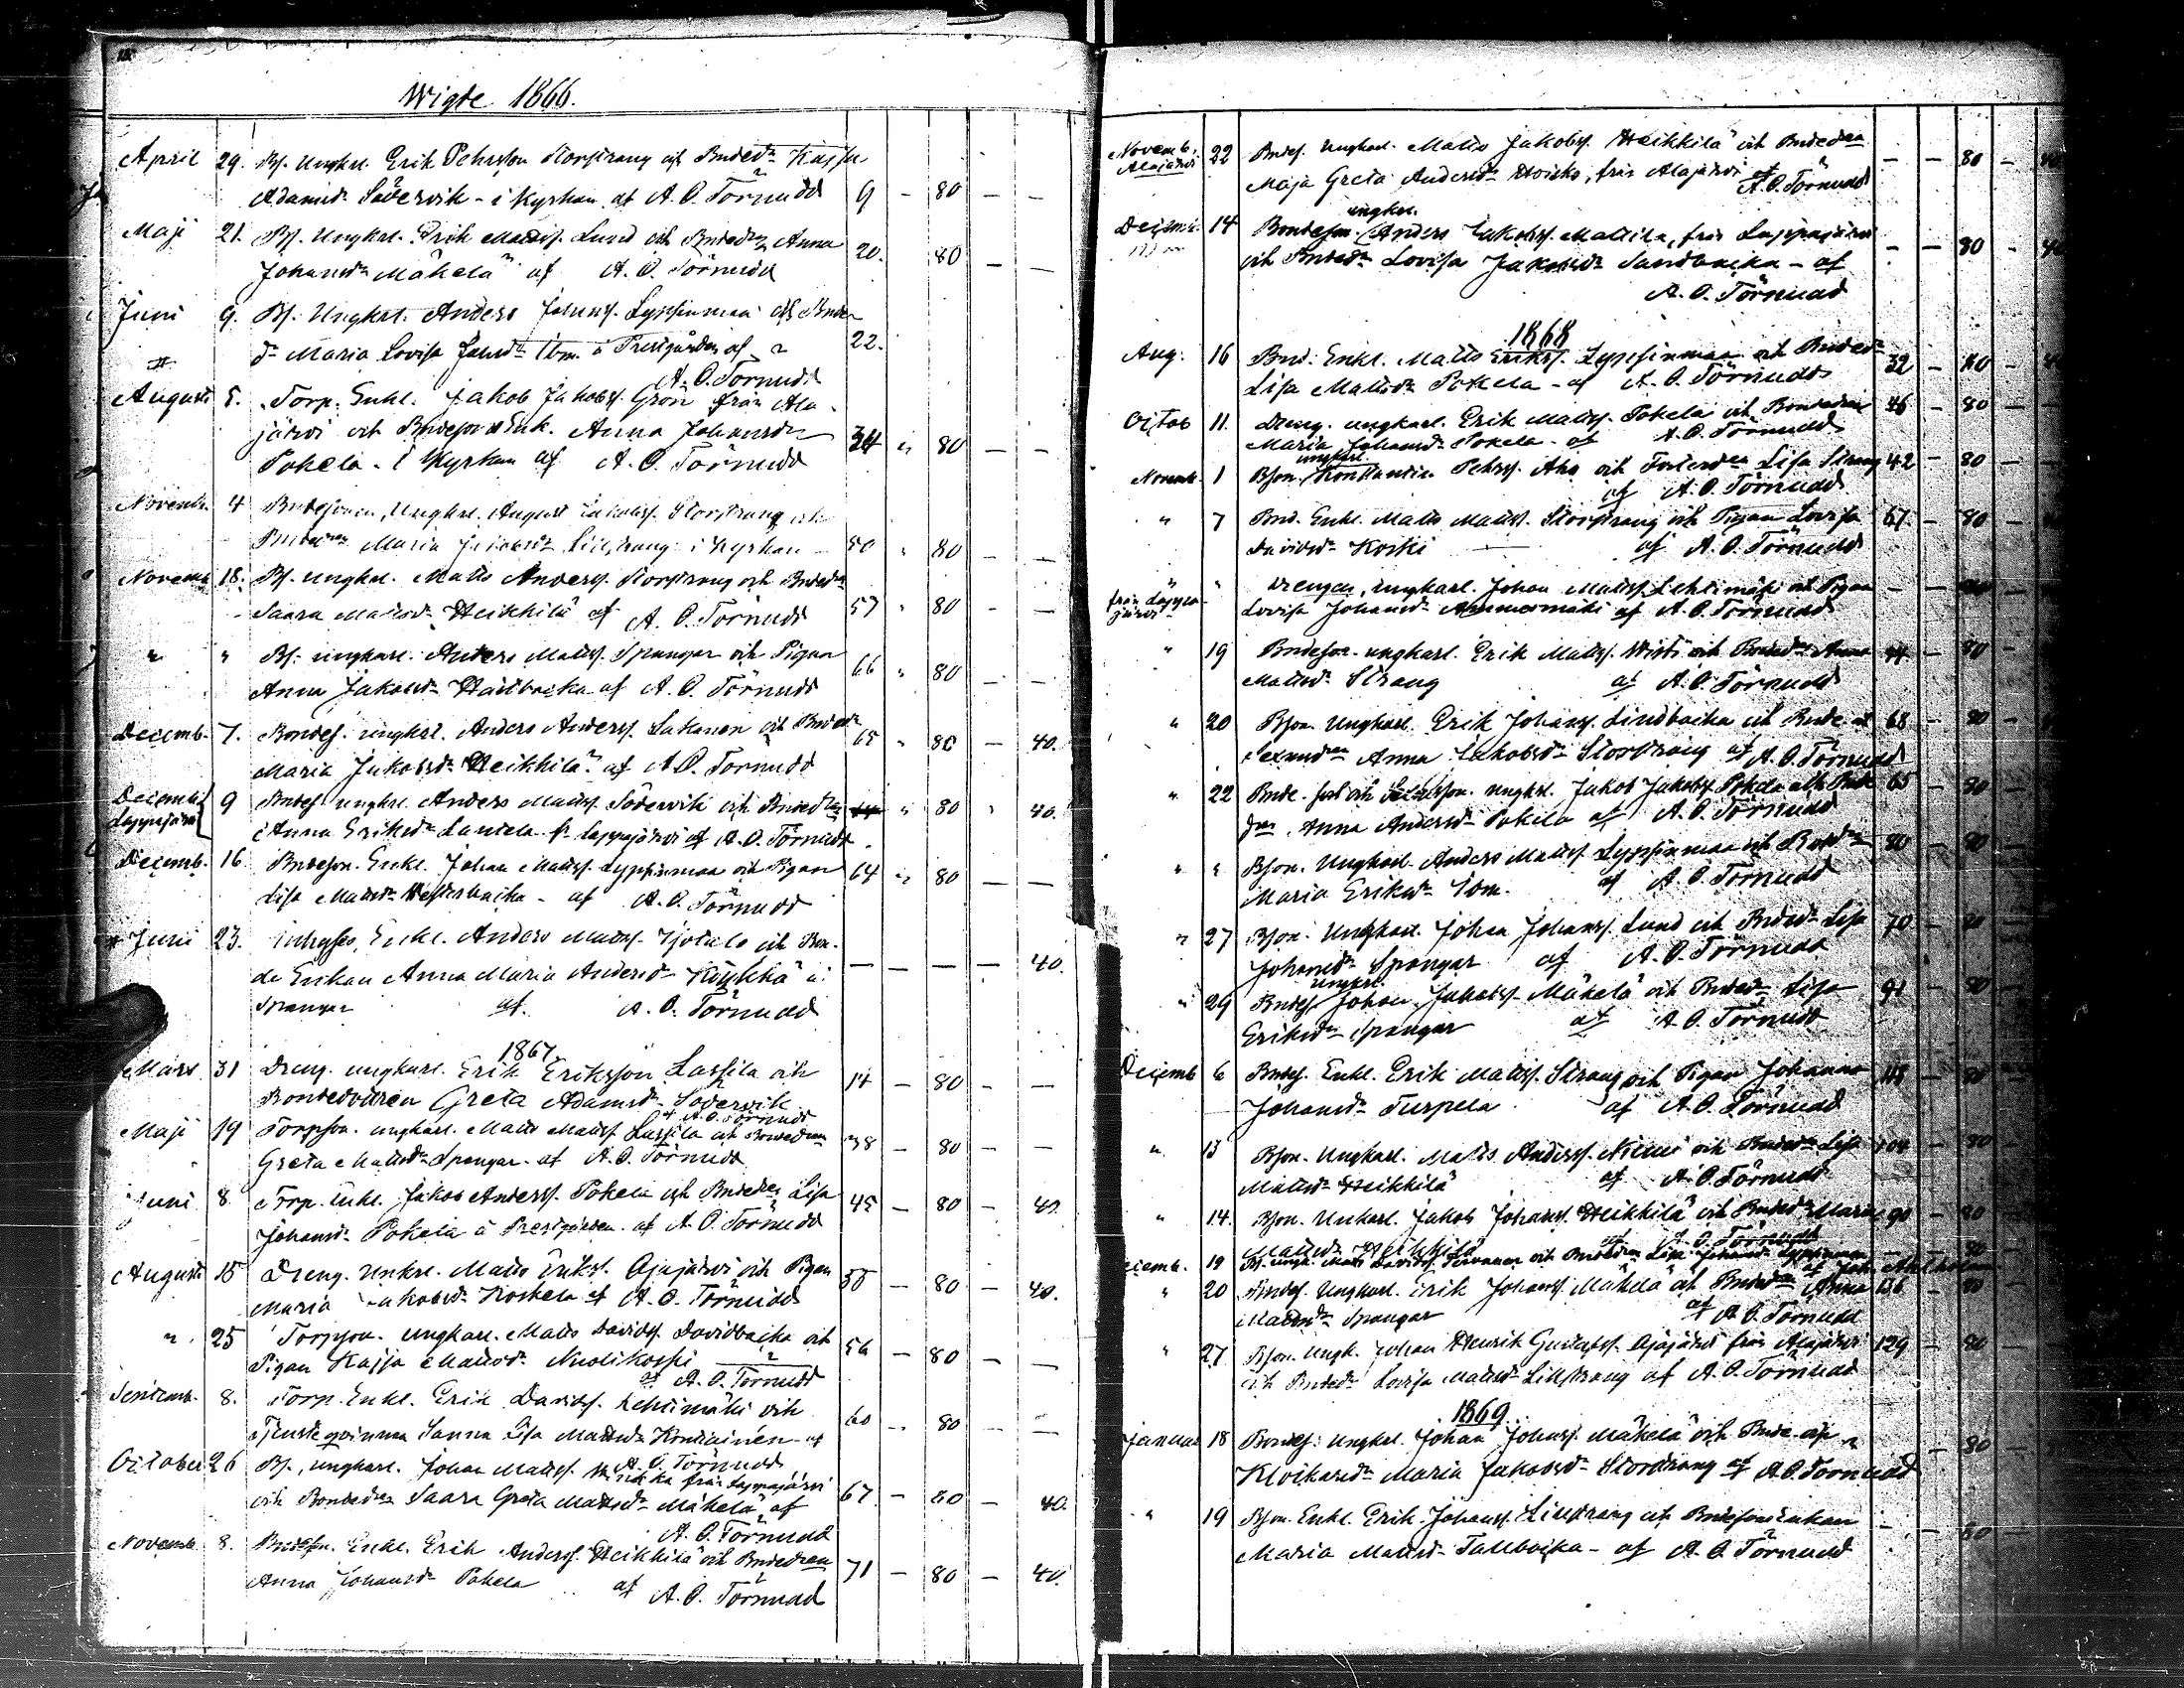 Wigde 1866.
April 29. Bs. Ungkrl. Erik Pehrsson Storstrang och Bndedr Kajsa
Adamsdr Södervik - i kyrkan af A. O. Törnudd 9 - 80 - -
Maji 21. Bs. Ungkrl. Erik Mattss. Lund och Bndedr Anna
Johansdr Mäkelä af A. O. Törnudd 20. 80 - -
Juni 9. Bs. Ungkrl. Anders Johanss. Lyppinmaa och Bnde
dr Maria Lovisa Johsdr ibm. å Prestgården af 22.
A. O. Törnudd
Augusti 5. Torp. Enkl. Jakob Jakobss. Grön från Ala-
järvi och Bndeson Enk. Anna Johansdr
Pokela - i Kyrkan af A. O. Törnudd 34 " 80 - -
Novemb. 4 Bndesonen, Ungkrl. August Jakobss. Storstrang och
Bndedrn Maria Jakobsdr Lillstrang i kyrkan - 50 " 80 - -
Novemb. 18. Bs. Ungkrl. Matts Anderss. Storstrang och Bndedr
Saara Mattsdr Heikkilä af A. O. Törnudd 57 " 80 - -
" " Bs. ungkarl. Anders Matts. Spangar och Pigan
Anna Jakobsdr Hästbacka af A. O. Törnudd 66 " 80 - -
Decemb. 7. Bondes. ungkrl. Anders Anderss. Sakanen och Bndedr
Maria Jakobsdr Heikkilä af A. O. Törnudd 65 " 80 - 40.
Decemb. 9 Bndes. ungkrl. Anders Matss. Södervik och Bndedrn " 80 " 40.
Lappajärvi Anna Eriksdr Laniela fr. Lappajärvi af A. O. Törnudd
Decemb. 16 Bndeson. Enkl. Johan Matss. Lyppinmaa och Pigan 64 " 80 - -
Lisa Mattsdr Westerbacka - af A. O. Törnudd
Juni 23. Inhyses, Enkl. Anders Matss. och Bon-
de Enkan Anna Maria Andersdr Köykkä i
Spangar af A. O. Törnudd - - - - 40.
1867
Mars 31 Dreng. ungkarl. Erik Eriksson Lassila och 14 - 80 - -
Bondedottren Greta Adamsdr Södervik
af A. O. Törnudd
Maji 19 Torpson. ungkarl. Matts Matss. Lassila och Bondedren 38 - 80 - -
Greta Mattsdr Spangar - af A. O. Törnudd
Juni 8 Torp. Enkl. Jakob Anderss. Pokela och Bndedr Lisa 45 - 80 - 40.
Johansdr Pokela å Prestgården. af A. O. Törnudd
Augusti 15 Dreng. Unkrl. Matts Erikss. Ajajärvi och Pigan 55 - 80 - 40.
Maria Jakobsdr Koskela af A. O. Törnudd
" 25 Torpson. Ungkarl. Matts Davidss. Davidbacka och 56 - 80 - -
Pigan Kajsa Mattsdr Nuolikoski
af A. O. Törnudd
Septemb. 8. Torp. Enkl. Erik Davidss. Lehtimäki och 60 - 80 - -
Tjensteqvinna Sanna Lisa Mattsdr Kontiainen - af
A. O. Törnudd
October 26 Bs., ungkarl. Johan Matss. från Lappajärvi
och Bondedr Saara Greta Mattsdr Mäkelä af 67 - 80 - 40.
A. O. Törnudd
Novemb. 8. Bndesn. Enkl. Erik Anderss. Heikkilä och Bndedren
Anna Johansdr Pokela af A. O. Törnudd 71 - 80 - 40.
Novemb. 22 Bndes. Ungkarl. Matts Jakobss. Heikkilä och Bndedrn - - 80 - 40
Alajärvi Maja Greta Andersdr Hoisko, från Alajärvi af
A. O. Törnudd
Decemb. 14 Bondeson. ungkrl. Anders Jakobss. Mattila, från Lappajärvi - - 80 - 40
och Bndedr Lovisa Jakobsdr Sandbacka - af
A. O. Törnudd
1868
Aug. 16 Bnd. Enkl. Matts Erikss. Lyppinmaa och Bndedr 32 - 80 -
Lisa Mattsdr Pokela - af A. O. Törnudd
Octob 11. Dreng. ungkarl. Erik Matss. Pokela och Bondedren 46 - 80 -
Maria Johansdr Pokela - af A. O. Törnudd
Novemb. 1 Bson. ungkarl. Konstantin Pehrss. Aho och Fosterdrn Lisa Strang 42 - 80 -
af A. O. Törnudd
" 7 Bnd. Enkl. Matts Matss. Storstrang och Pigan Lovisa 67 - 80 -
Davidsdr Koski af A. O. Törnudd
" " Drengen, ungkarl. Johan Matss. Lehtimäki och Pigan - -
från Lappajärvi Lovisa Johansdr Ammesmäki af A. O. Törnudd
" 19 Bndeson. ungkarl. Erik Matss. Wisti och Bndedr Anna 44 - 80 -
Mattsdr Strang af A. O. Törnudd
" 20 Bson. Ungkarl. Erik Johanss. Lindbacka och Bnde och 68 - 80 -
Sexmdrn Anna Jakobsdr Storstrang af A. O. Törnudd
" 22 Bnde. ungkrl. Jakob Jakobss. Pokela och Bnde 65 - 80 -
drn Anna Andersdr Pokela af A. O. Törnudd
" " Bson. Ungkarl. Anders Matss. Lyppinmaa och Bndedr 80 - 80 -
Maria Eriksdr ibm. af A. O. Törnudd
" 27 Bson. Ungkarl. Johan Johanss. Lund och Bndedr Lisa 70 - 80 -
Johansdr Spangar af A. O. Törnudd
" 29 Bndes. ungkrl. Johan Jakobss. Mäkelä och Bndedr Lisa 91 - 80
Eriksdr Spangar af A. O. Törnudd
Decemb 6 Bndes. Enkl. Erik Matss. Strang och Pigan Johanna - 80
Johansdr Turpela af A. O. Törnudd
" 13 Bson. Ungkarl. Matts Anderss. Niemi och Bndedr Lisa 104 - 80
Mattsdr Heikkilä af A. O. Törnudd
" 14. Bson. Unkarl. Jakob Johanss. Heikkilä och Bndedr Maria 90 - 80
Mattsdr Heikkilä af A. O. Törnudd
Decemb. 19 Bs. ungk. Matts Davidss. och Bndedrn Lisa Johansdr Lyppinmaa 80
af Joh.
" 20 Bndes. Ungkarl. Erik Johanss. Mäkelä och Bndedr Anna 136 - 80
Mattsdr Spangar af A. O. Törnudd
" 27 Bson. Ungk. Johan Henrik Gustafss. Ajajärvi från Alajärvi 129 - 80
och Bndedr Lovisa Mattsdr Lillstrang af A. O. Törnudd
1869
Januar 18 Bondes. Ungkrl. Johan Johanss. Mäkelä och Bnde och - 80
Klockaredr Maria Jakobsdr Storstrang af A. O. Törnudd
" 19 Bson. Enkl. Erik Johanss. Lillstrang och Bndesonsenkan - - 80
Maria Mattsdr Tallbacka - af A. O. Törnudd